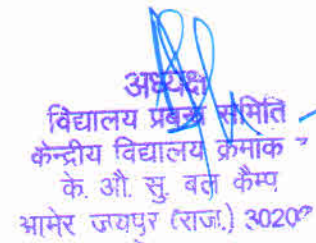 अध्यक्ष
विद्यालय प्रबन्ध समिति
केन्द्रीय विद्यालय क्रमांक
के. औ. सु. बल कैम्प
आमेर जयपुर (राज.)